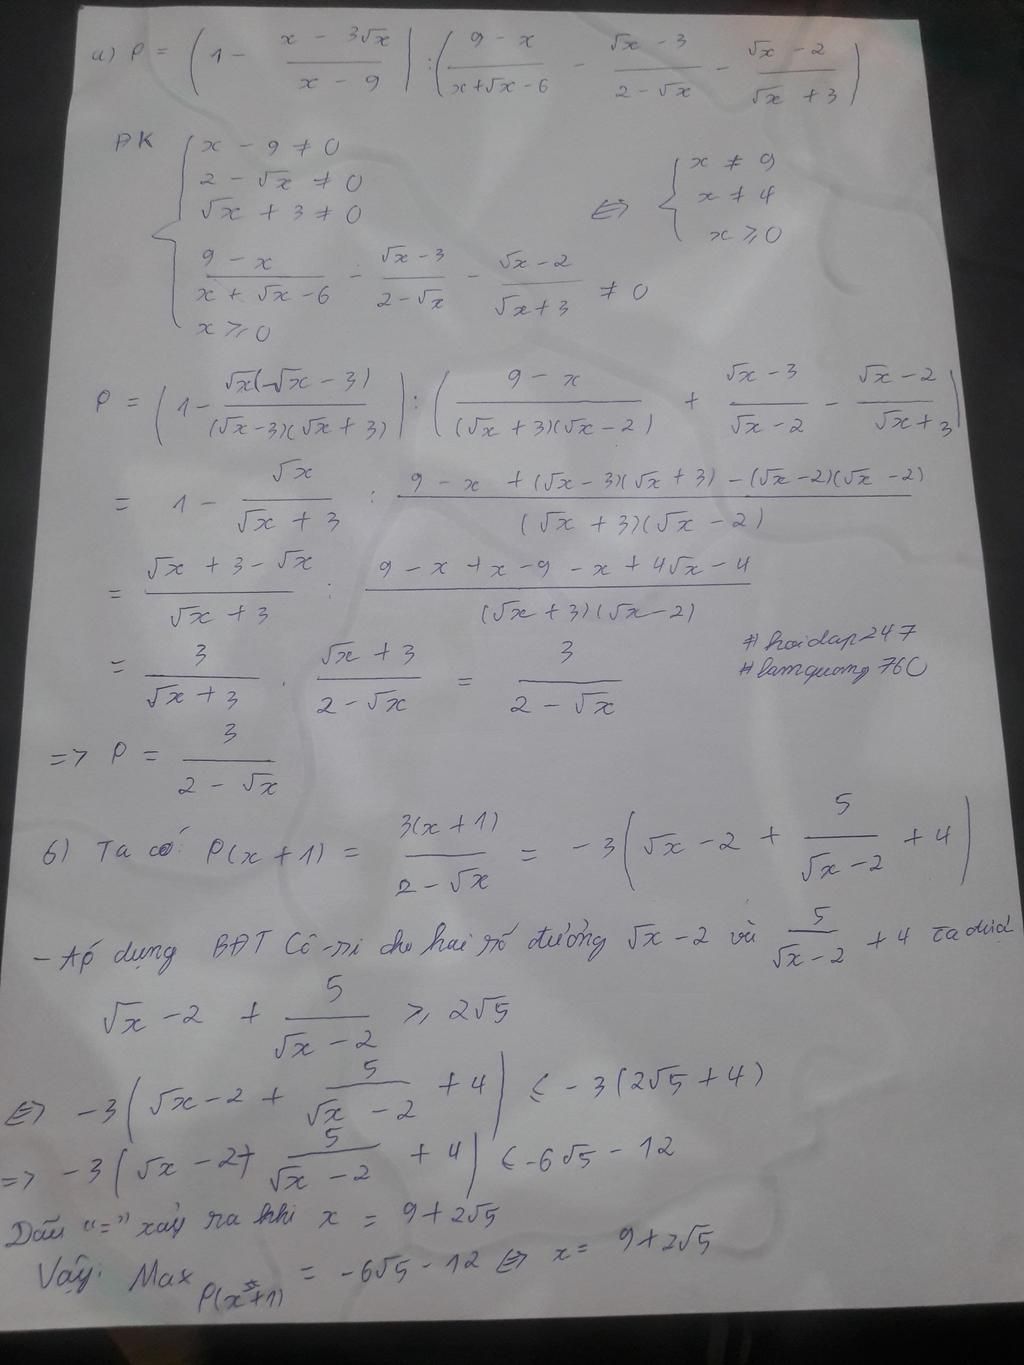 a) P = (1 - (x - 3√x)/(x - 9)) : ((9 - x)/(x+√x - 6) - (√x - 3)/(2 - √x) - (√x - 2)/(√x + 3))
ĐK { x - 9 ≠ 0
2 - √x ≠ 0
√x + 3 ≠ 0
(9 - x)/(x + √x - 6) - (√x - 3)/(2 - √x) - (√x - 2)/(√x + 3) ≠ 0
x ≥ 0
<=> { x ≠ 9
x ≠ 4
x ≥ 0
P = (1 - √x(√x - 3)/((√x - 3)(√x + 3))) : ((9 - x)/((√x + 3)(√x - 2)) + (√x - 3)/(√x - 2) - (√x - 2)/(√x + 3))
= 1 - √x/(√x + 3) : (9 - x + (√x - 3)(√x + 3) - (√x - 2)(√x - 2))/((√x + 3)(√x - 2))
= (√x + 3 - √x)/(√x + 3) : (9 - x + x - 9 - x + 4√x - 4)/((√x + 3)(√x - 2))
= 3/(√x + 3) . (√x + 3)/(2 - √x) = 3/(2 - √x)
#hoidap247
#lamquang760
=> P = 3/(2 - √x)
b) Ta có: P(x + 1) = 3(x + 1)/(2 - √x) = -3(√x - 2 + 5/(√x - 2) + 4)
- Áp dụng BĐT Cô-si cho hai số dương √x - 2 và 5/(√x - 2) + 4 ta được
√x - 2 + 5/(√x - 2) ≥ 2√5
<=> -3(√x - 2 + 5/(√x - 2) + 4) ≤ -3(2√5 + 4)
=> -3(√x - 2 + 5/(√x - 2) + 4) ≤ -6√5 - 12
Dấu "=" xảy ra khi x = 9 + 2√5
Vậy: Max P(x+1) = -6√5 - 12 <=> x = 9 + 2√5